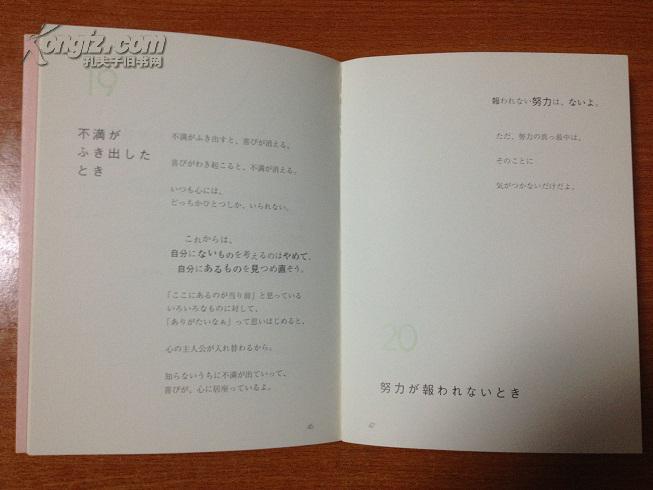 Kongfz.com
孔夫子旧书网
19
不満が
ふき出した
とき
不満がふき出すと、喜びが消える。
喜びがわき起こると、不満が消える。
いつも心には、
どっちかひとつしか、いられない。
これからは、
自分にないものを考えるのはやめて、
自分にあるものを見つめ直そう。
「ここにあるのが当り前」と思っている
いろいろなものに対して、
「ありがたいなぁ」って思いはじめると、
心の主人公が入れ替わるから。
知らないうちに不満が出ていって、
喜びが、心に居座っているよ。
46
報われない努力は、ないよ。
ただ、努力の真っ最中は、
そのことに
気がつかないだけだよ。
20
努力が報われないとき
47